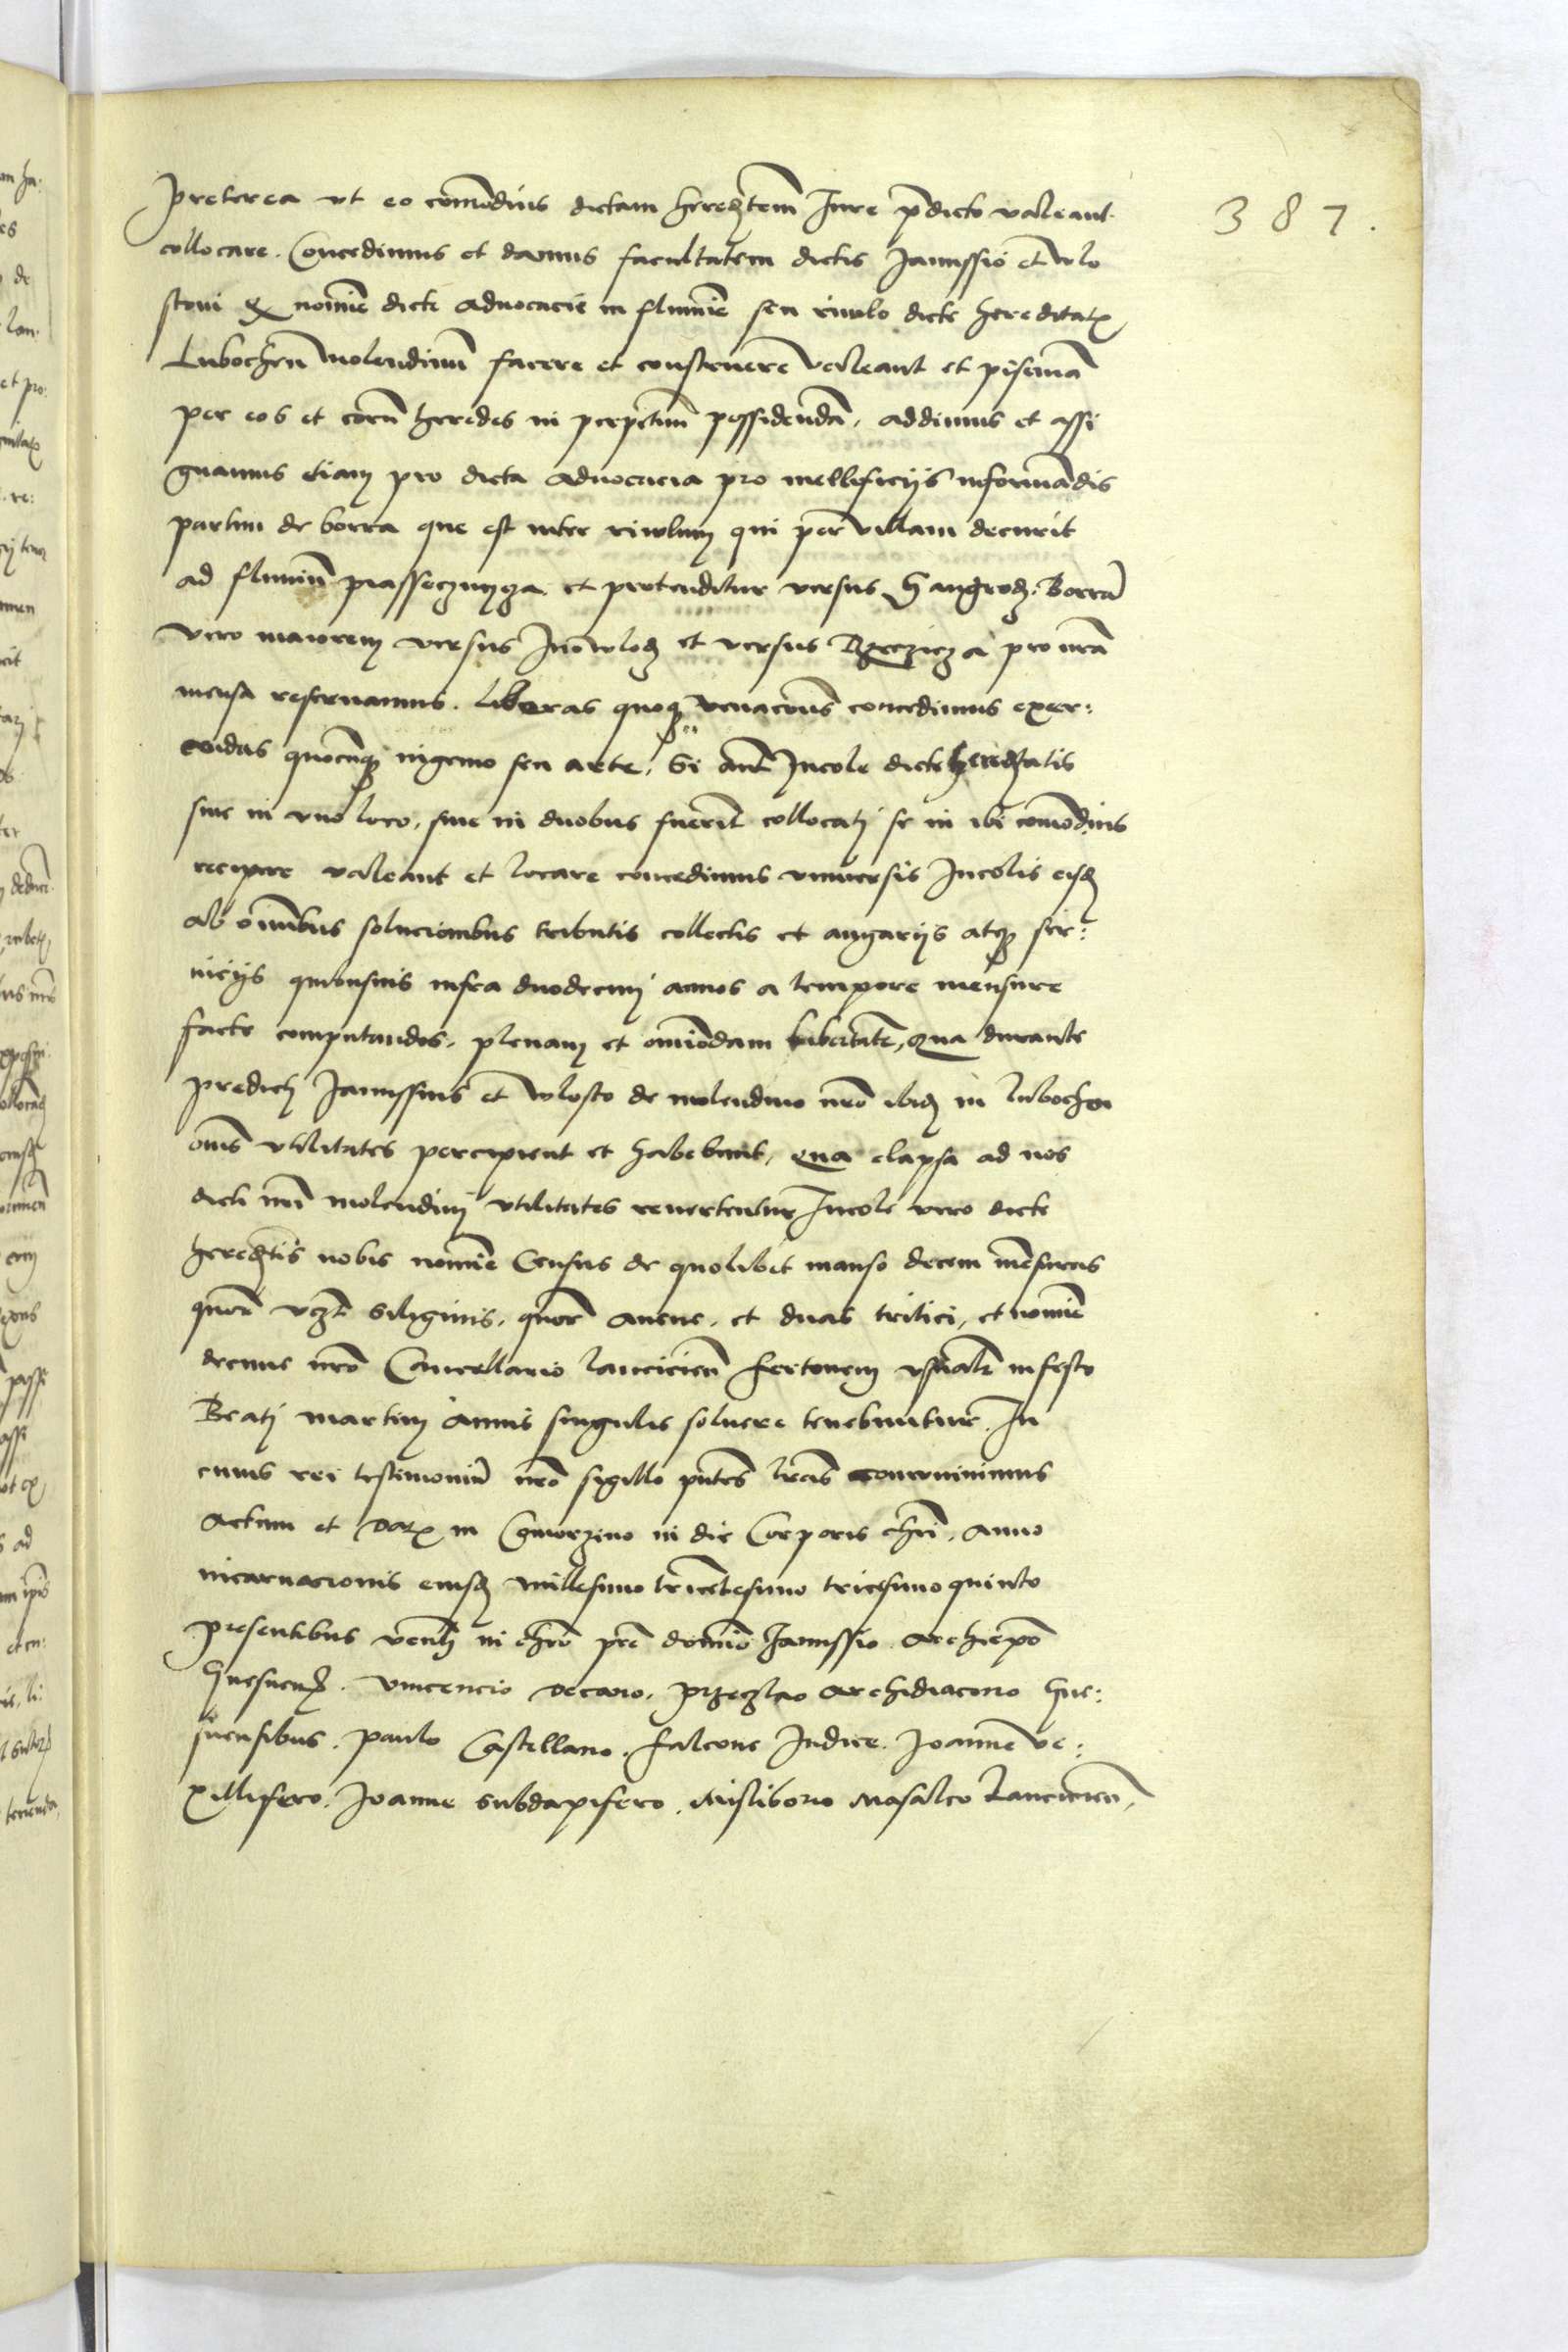 387.
Preterea ut eo comōdius dictam heredtem̄ Iure p̄dicto valeant
collocare. Concedimus et damus facultatem dictis Janussio et wlo
stoni & nomīe dicte aduocacie in flumīe seu riwlo dicte hereditatꝭ
Lubochen̄ molendinū facere et construere valeant et pisnīa
per eos et eorū heredes in perpetuū possidendā, addimus et assi
gnamus etiam pro dicta aduocacia pro mellificijs informādis
partim de borra que est inter riwlum qui per villam decurit
ad flumen piasseczniza et protenditur versus Sangrodz. Borrā
vero maiorem versus Inowlodz et versus Brzezicza pro nrā
mensa reseruamus. Liberas quoqꝫ venacōnes concedimus exer:
cendas quocūqꝫ ingenio seu arte. Si aūt Incole dicte heredtatis
siue in vno loco, siue in duobus fuerīt collocati se in ibi comōdius
recipere valeant et locare concedimus vniuersis Incolis eisdē
ab oīnibus solucionibus tributis collectis et angarijs atqꝫ ser:
uicijs quibusuis infra duodecim annos a tempore mensure
facte computandos, plenam et omīodam libertatē, Qua durante
predicti Janussius et wlosto de molendino nrō ibidē in Lubochen
om̄s vtilitates percipient et habebunt, qua elapsa ad nos
dicti nrī molendini vtilitates reuertentur Incole vero dicte
heredtis nobis nomīe Census de quolibet manso decem mēsuras
quor̄ vczt siliginis, quor̄ auene, et duas tritici, et nomīe
decime nrō Cancellario lancicien̄ fertonem vsualē in festo
Beati martini annis singulis soluere tenebuntur. In
cuius rei testimoniū nrō sigillo pn̄tes lrās communimus
Actum et Datꝭ in Gmorzino in die Corporis chrī, Anno
incarnacionis eiusdē millesimo tricentesimo tricesimo quinto
presentibus ven̄li in chrō pr̄e domīo Janussio Archiep̄o
Gnesnen̄. Vincencio decano, Przeczlao Archidiacono Gne:
snensibus, Paulo Castellano. Falcone Iudice. Joanne ve:
xillifero. Joanne subdapifero, Mistiborio Masalco Lancicien̄,